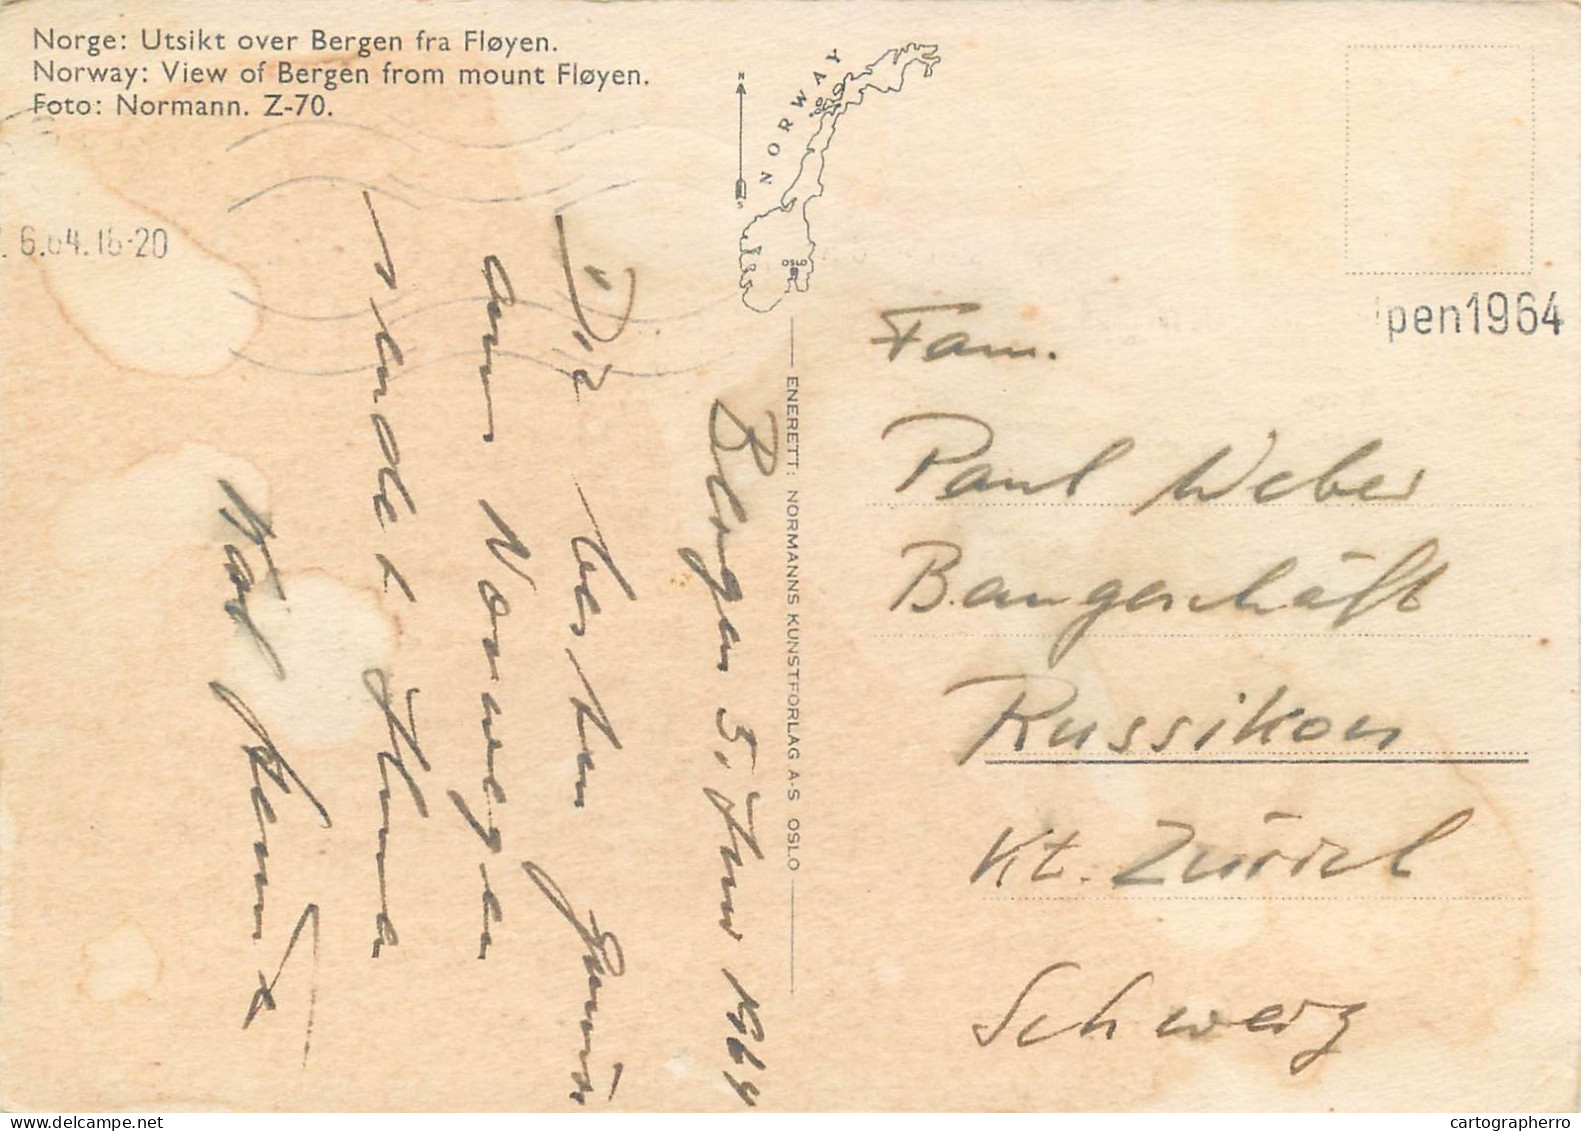 Norge: Utsikt over Bergen fra Fløyen.
Norway: View of Bergen from mount Fløyen.
Foto: Normann. Z-70.
6.64.16-20
N
S
NORWAY
OSLO
pen1964
ENERETT: NORMANNS KUNSTFORLAG A-S OSLO
Bergen 3. Juni 1964
Die besten Grüsse
aus Norwegen
sendet Ihnen
Fam.
Paul Weber
Baugeschäft
Russikon
Kt. Zürich
Schweiz
cartographerro